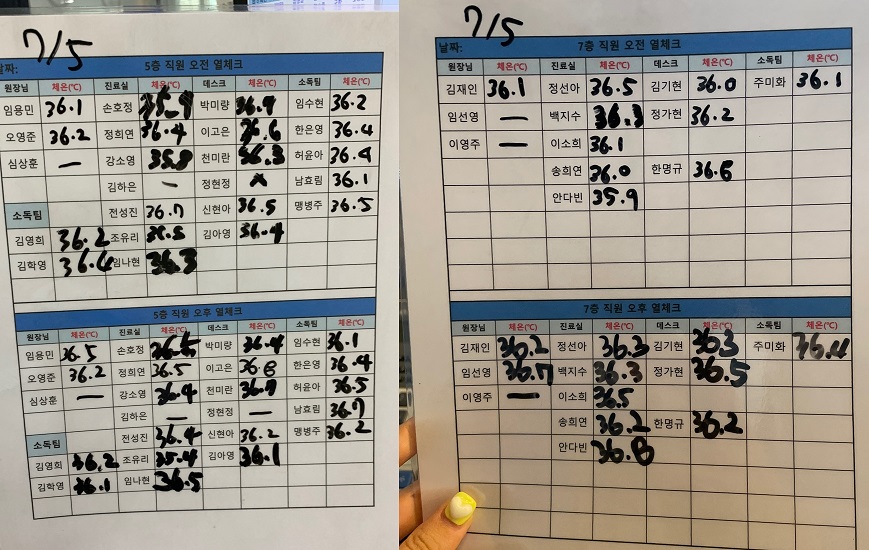 7/5
날짜: 5층 직원 오전 열체크
원장님 체온(℃) 진료실 체온(℃) 데스크 체온(℃) 소독팀 체온(℃)
임용민 36.1 손호정 35.9 박미량 36.9 임수현 36.2
오영준 36.2 정희연 36.4 이고은 36.6 한은영 36.4
심상훈 — 강소영 35.8 천미란 36.3 허윤아 36.4
김하은 — 정현정 남효림 36.1
소독팀 전성진 36.7 신현아 36.5 맹병주 36.5
김영희 36.2 조유리 김아영 36.4
김학영 36.4 임나현 36.3
5층 직원 오후 열체크
원장님 체온(℃) 진료실 체온(℃) 데스크 체온(℃) 소독팀 체온(℃)
임용민 36.5 손호정 박미량 36.4 임수현 36.1
오영준 36.2 정희연 36.5 이고은 36.8 한은영 36.4
심상훈 — 강소영 36.4 천미란 36.7 허윤아 36.5
김하은 — 정현정 — 남효림 36.7
소독팀 전성진 36.4 신현아 36.2 맹병주 36.2
김영희 36.2 조유리 35.4 김아영 36.1
김학영 36.1 임나현 36.5
7/5
날짜: 7층 직원 오전 열체크
원장님 체온(℃) 진료실 체온(℃) 데스크 체온(℃) 소독팀 체온(℃)
김재인 36.1 정선아 36.5 김기현 36.0 주미화 36.1
임선영 — 백지수 36.3 정가현 36.2
이영주 — 이소희 36.1
송희연 36.0 한명규 36.6
안다빈 35.9
7층 직원 오후 열체크
원장님 체온(℃) 진료실 체온(℃) 데스크 체온(℃) 소독팀 체온(℃)
김재인 36.2 정선아 36.3 김기현 36.3 주미화 36.4
임선영 36.7 백지수 36.3 정가현 36.5
이영주 — 이소희 36.5
송희연 36.2 한명규 36.2
안다빈 36.6